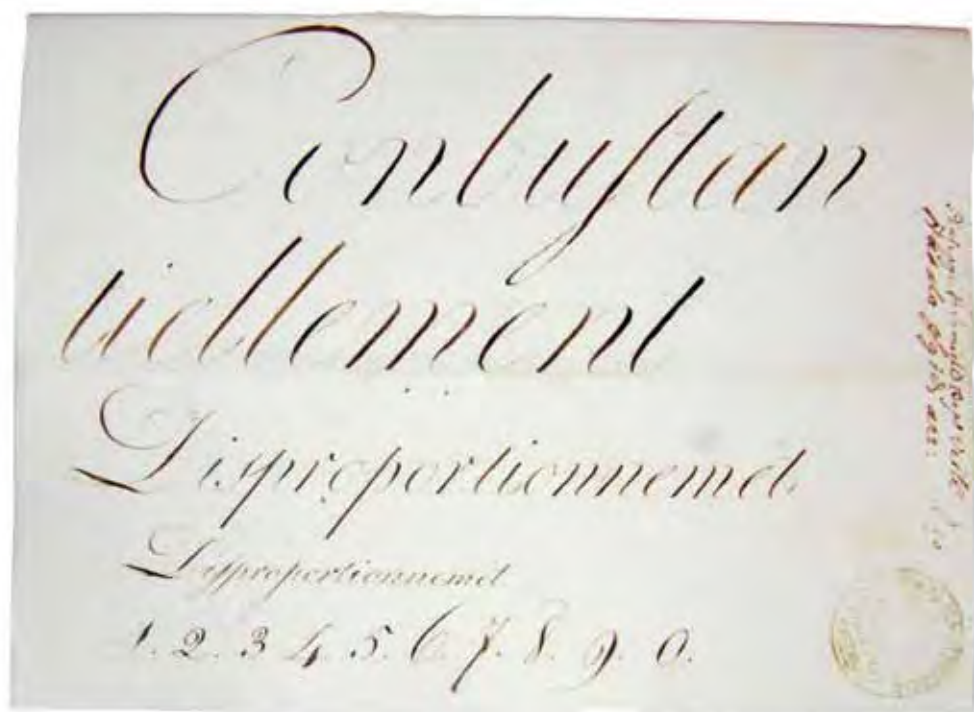 Conbuſtan
tiellement
Disproportionnemet
Disproportionnemet
1. 2. 3. 4. 5. 6. 7. 8. 9. 0.